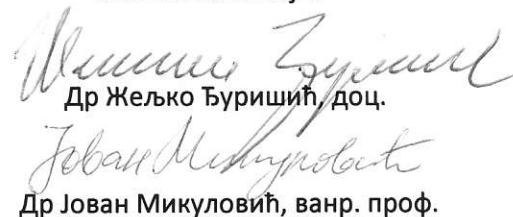 Др Жељко Ђуришић, доц.
Јован Микуловић
Др Јован Микуловић, ванр. проф.